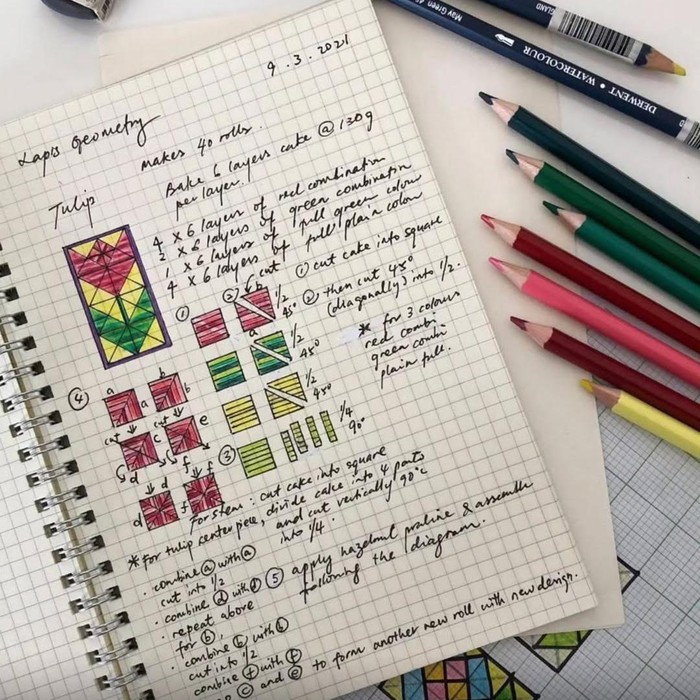 9.3.2021
Lapis Geometry
makes 40 rolls.
Tulip
Bake 6 layers cake @ 130g
per layer.
4 x 6 layers of red combination
2 x 6 layers of green combination
1 x 6 layers of full green colour
4 x 6 layers of full plain colour
① cut cake into square
② then cut 45°
(diagonally) into 1/2.
* for 3 colours
red combi
green combi
plain full.
① ② cut b 1/2 45°
a 1/2 45°
1/2 45°
③ 1/4 90°
④ a b
a b
cut cut
c e
d f f
d f
For stem: cut cake into square
* for tulip center piece, divide cake into 4 parts
and cut vertically 90°c
into 1/4.
· combine ⓐ with ⓐ
cut into 1/2
· combine ⓓ with ⓓ
· repeat above
for ⓑ,
· combine ⓑ with ⓑ
cut into 1/2
combine ⓕ with ⓕ
ⓒ and ⓔ to form another new roll with new design.
⑤ apply hazelnut praline & assemble
following the diagram.
May Green
ENGLAND
DERWENT • WATERCOLOUR